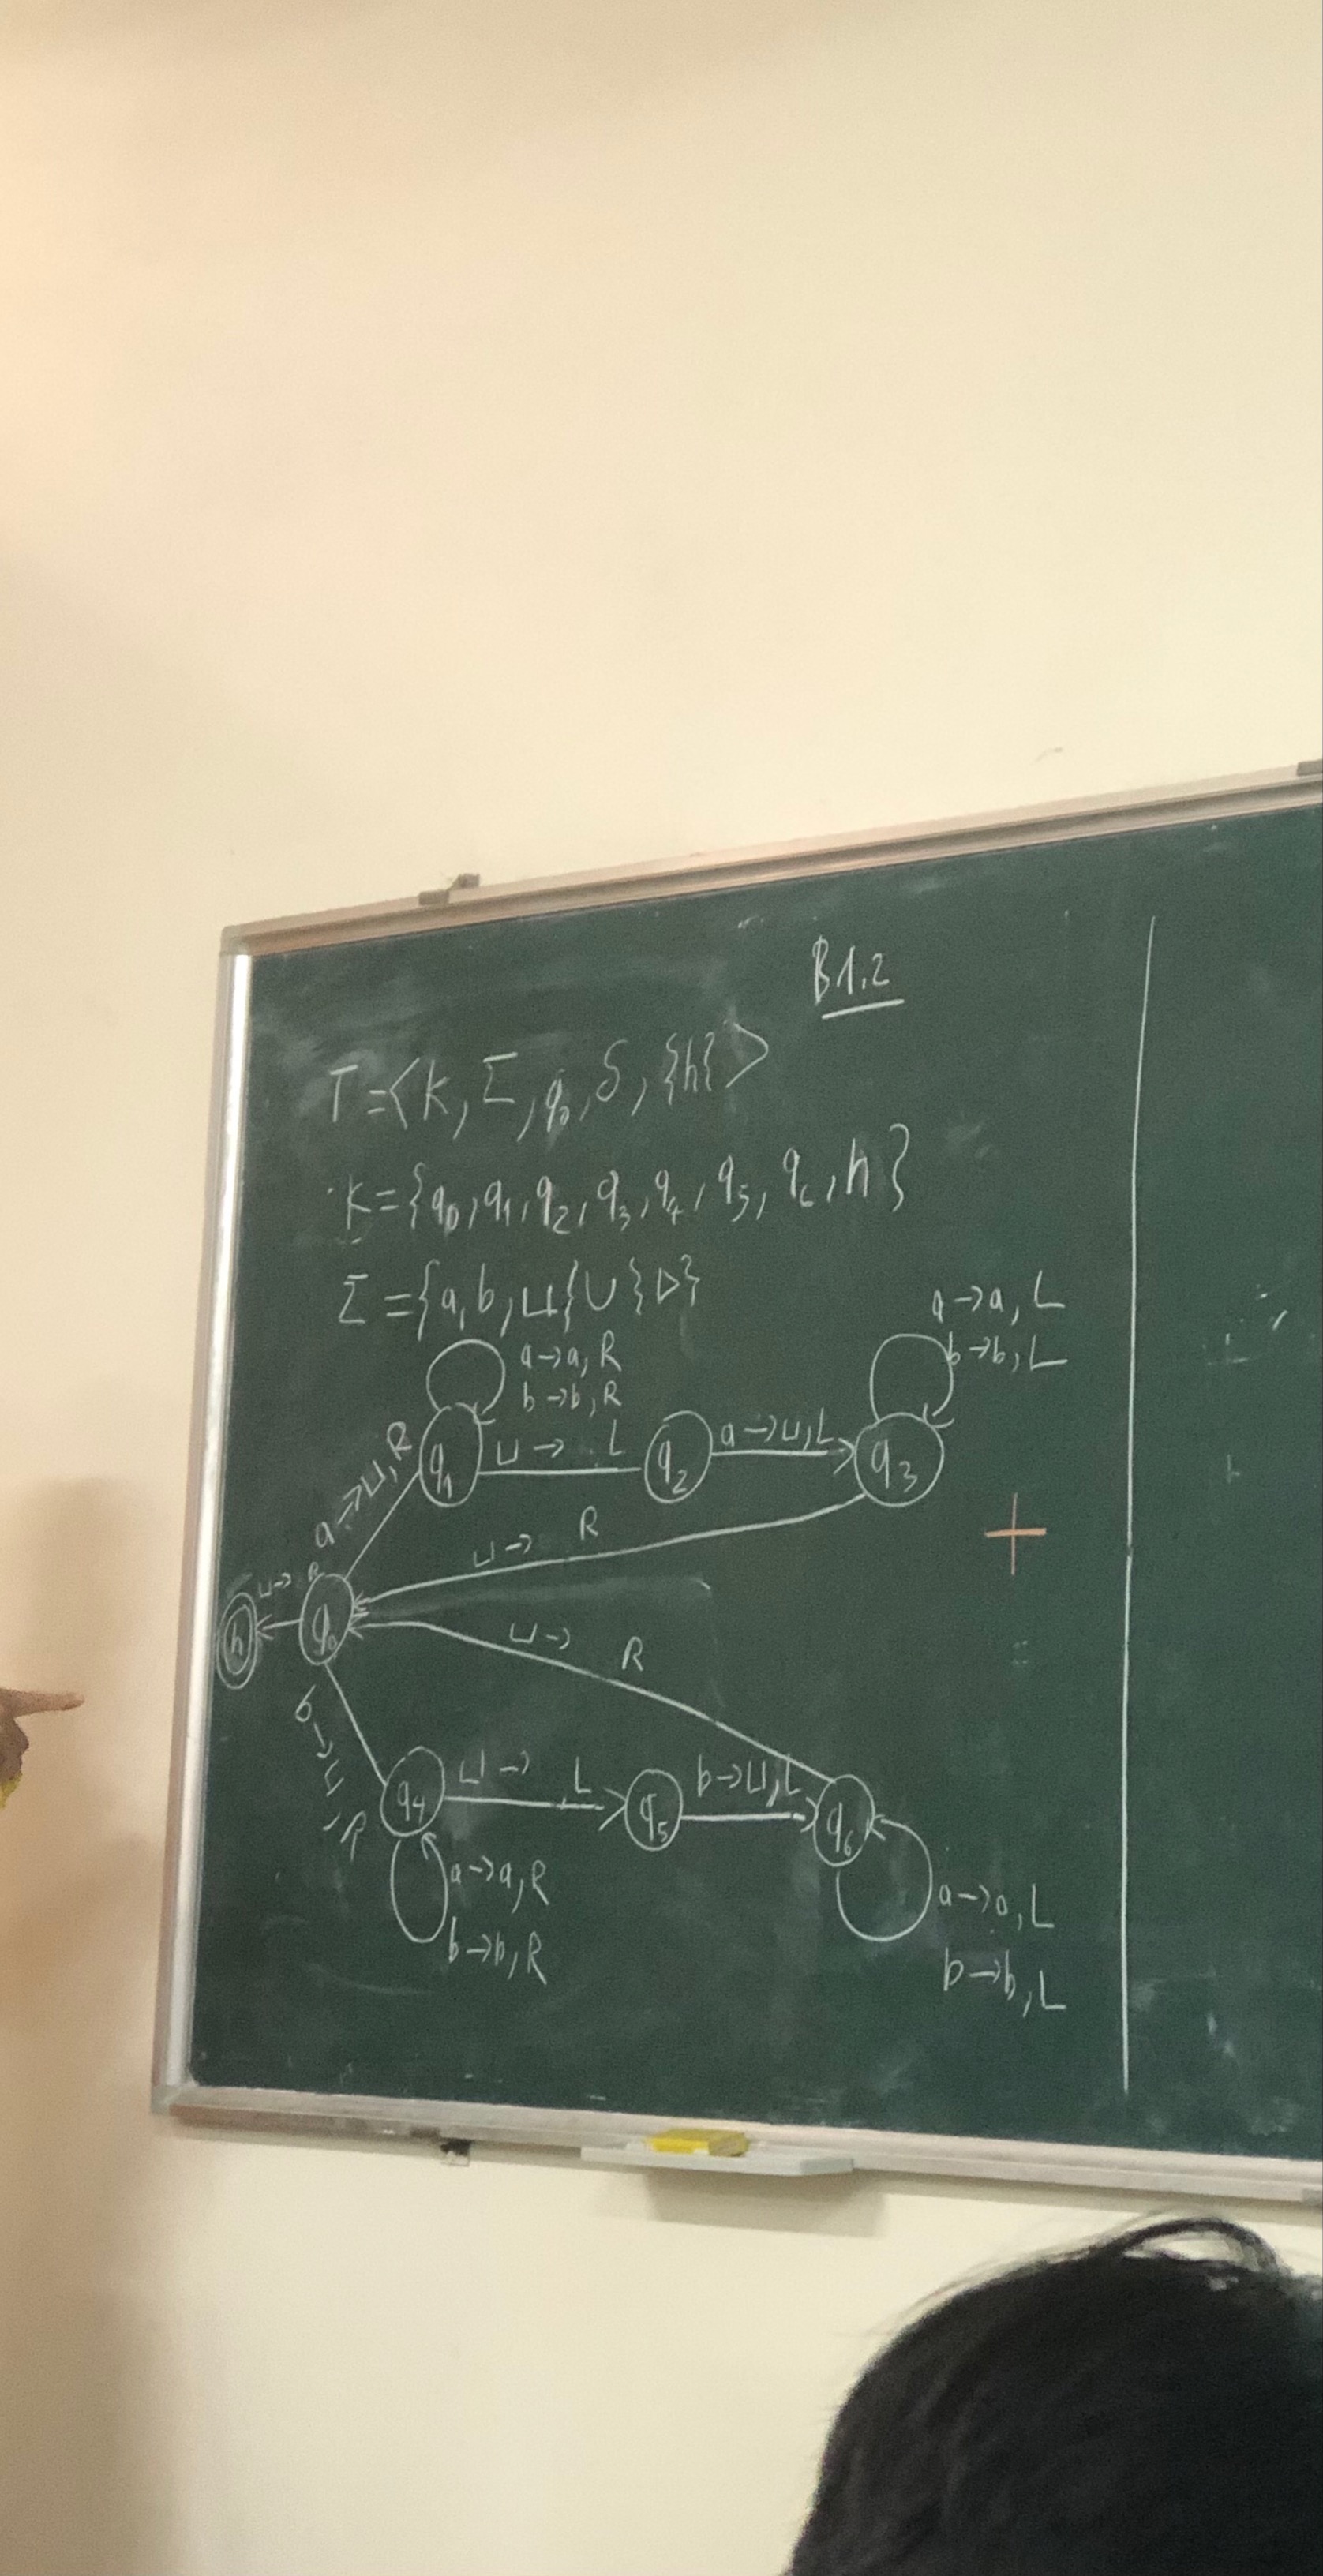 B1.2
T=<K, Σ, q₀, δ, {h}>
K={q₀, q₁, q₂, q₃, q₄, q₅, q₆, h}
Σ={a, b, ⊔{∪}▷}
a→a, L
b→b, L
a→a, R
b→b, R
a→⊔, R
q₁
⊔→ L
q₂
a→⊔, L
q₃
⊔→ R
⊔→ R
h
q₀
⊔→ R
b→⊔, R
q₄
⊔→ , L
q₅
b→⊔, L
q₆
a→a, R
b→b, R
a→a, L
b→b, L